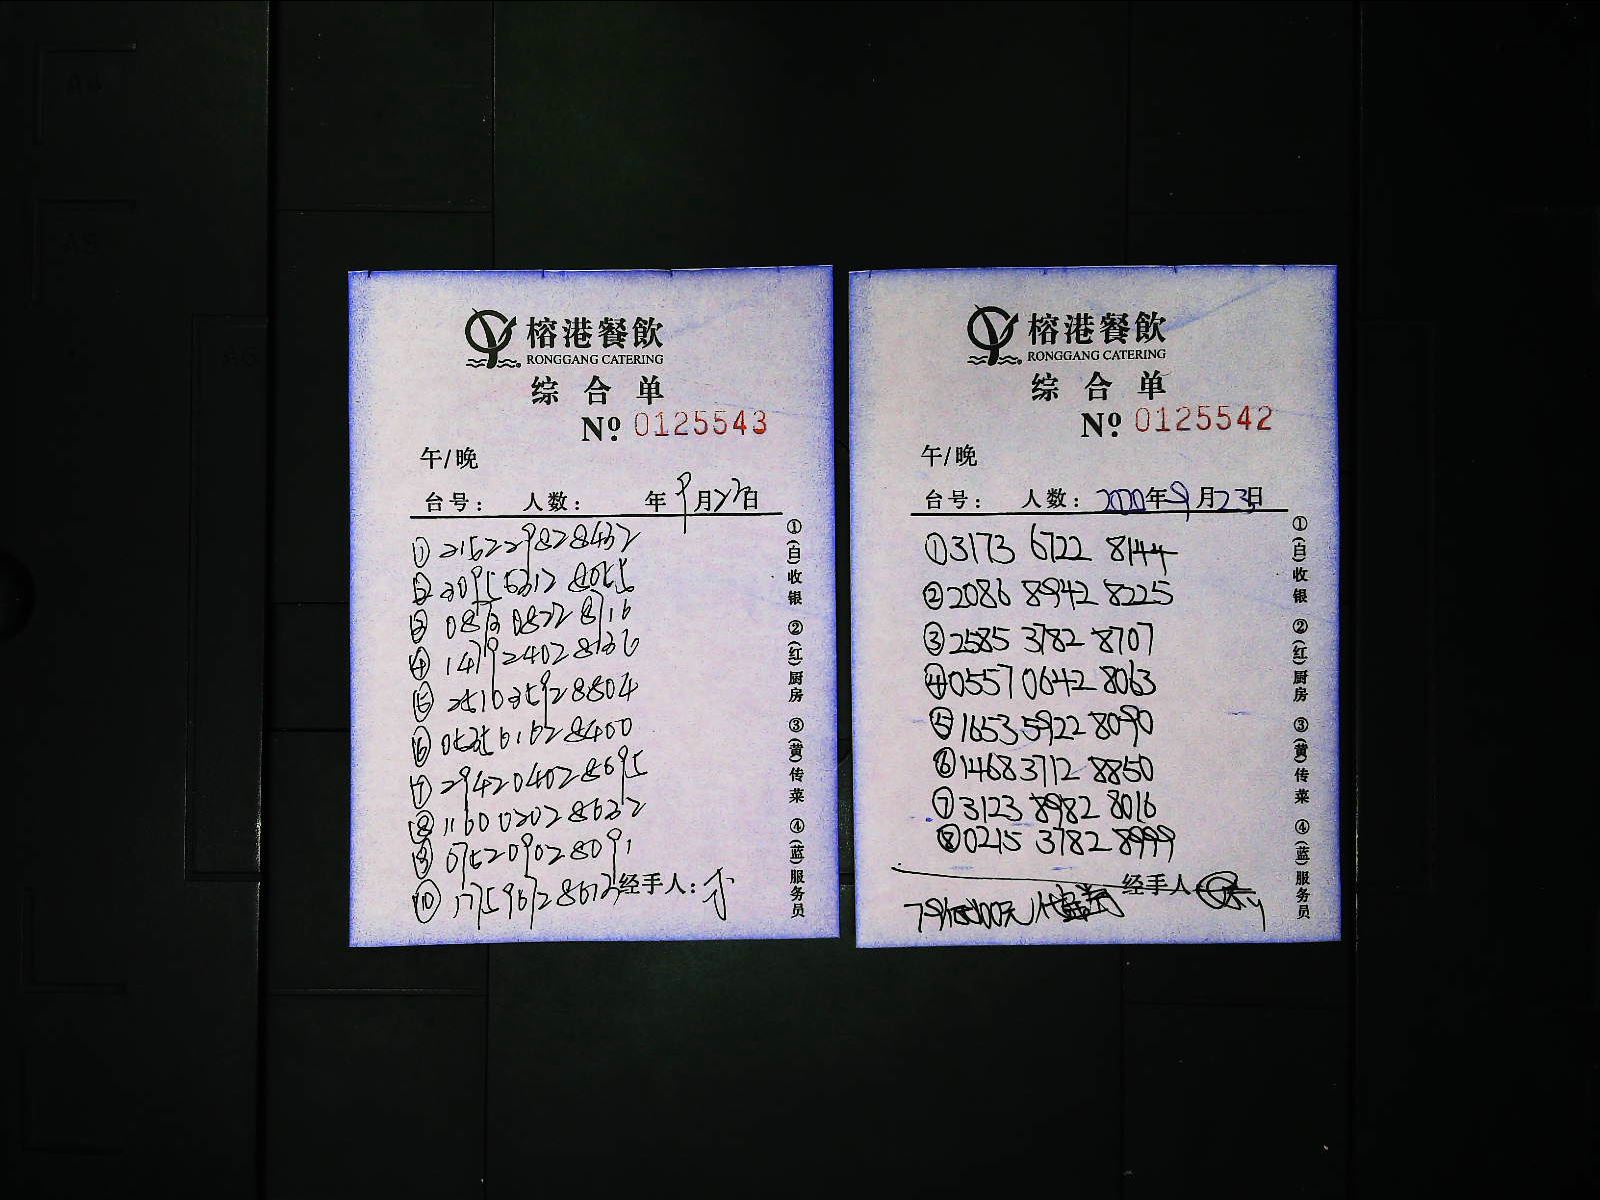 榕港餐飲
RONGGANG CATERING
综合单
Nº 0125543
午/晚
台号: 人数: 年9月23日
① 215229828432
② 209563128055
③ 0872 8116
④ 147924028136
⑤ 251035928804
⑥ 053561628400
⑦ 294204028695
⑧ 116002028632
⑨ 075209028091
⑩ 17596728612
经手人:
①(白)收银 ②(红)厨房 ③(黄)传菜 ④(蓝)服务员
榕港餐飲
RONGGANG CATERING
综合单
Nº 0125542
午/晚
台号: 人数: 2020年9月23日
① 3173 6722 8144
② 2086 8942 8225
③ 2585 3782 8707
④ 0557 0642 8063
⑤ 1653 5922 8090
⑥ 1468 3712 8850
⑦ 3123 8982 8016
⑧ 0215 3782 8999
经手人
①(白)收银 ②(红)厨房 ③(黄)传菜 ④(蓝)服务员